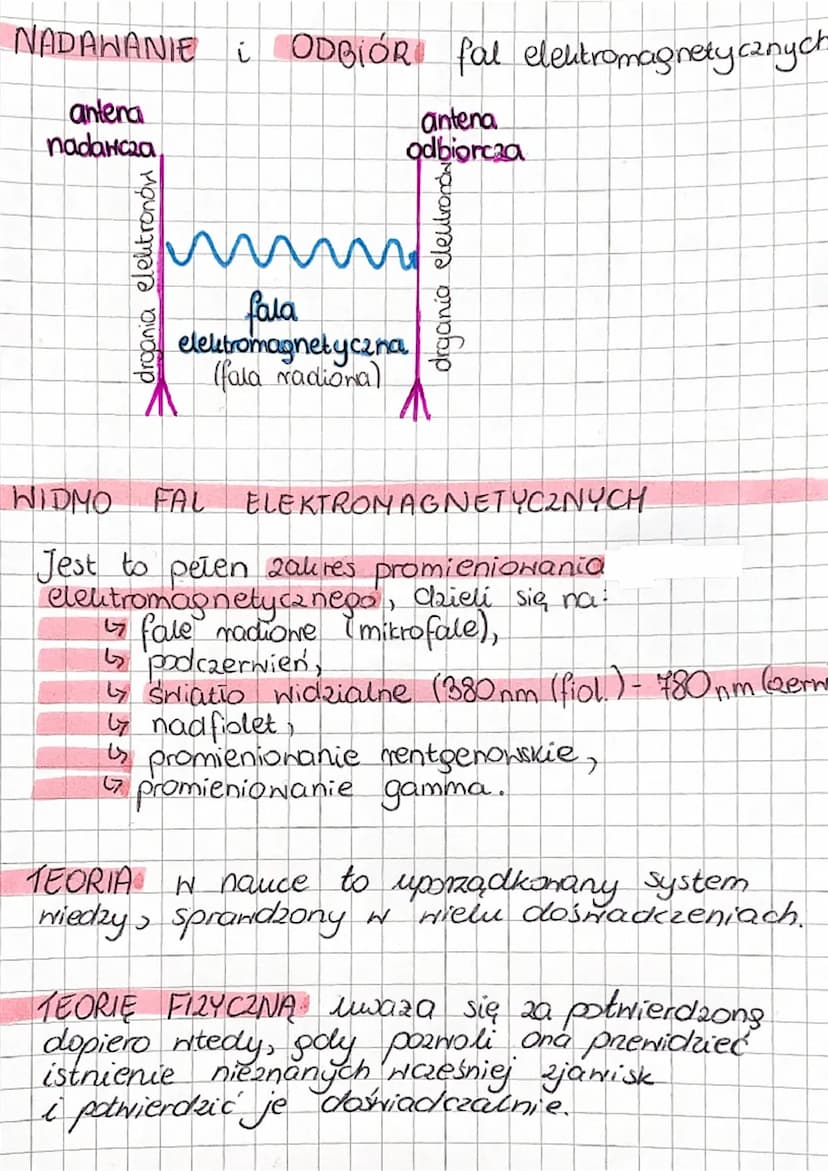 NADAWANIE i ODBIÓR fal elektromagnetycznych
antena
nadawcza
antena
odbiorcza
drgania elektronów
drgania elektronów
fala
elektromagnetyczna
(fala radiowa)
WIDMO FAL ELEKTROMAGNETYCZNYCH
Jest to pełen zakres promieniowania
elektromagnetycznego, dzieli się na:
↳ fale radiowe (mikrofale),
↳ podczerwień,
↳ światło widzialne (380nm (fiol.) - 780nm (czerw
↳ nadfiolet,
↳ promieniowanie rentgenowskie,
↳ promieniowanie gamma.
TEORIA w nauce to uporządkowany system
wiedzy, sprawdzony w wielu doświadczeniach.
TEORIĘ FIZYCZNĄ uważa się za potwierdzoną
dopiero wtedy, gdy pozwoli ona przewidzieć
istnienie nieznanych wcześniej zjawisk
i potwierdzić je doświadczalnie.